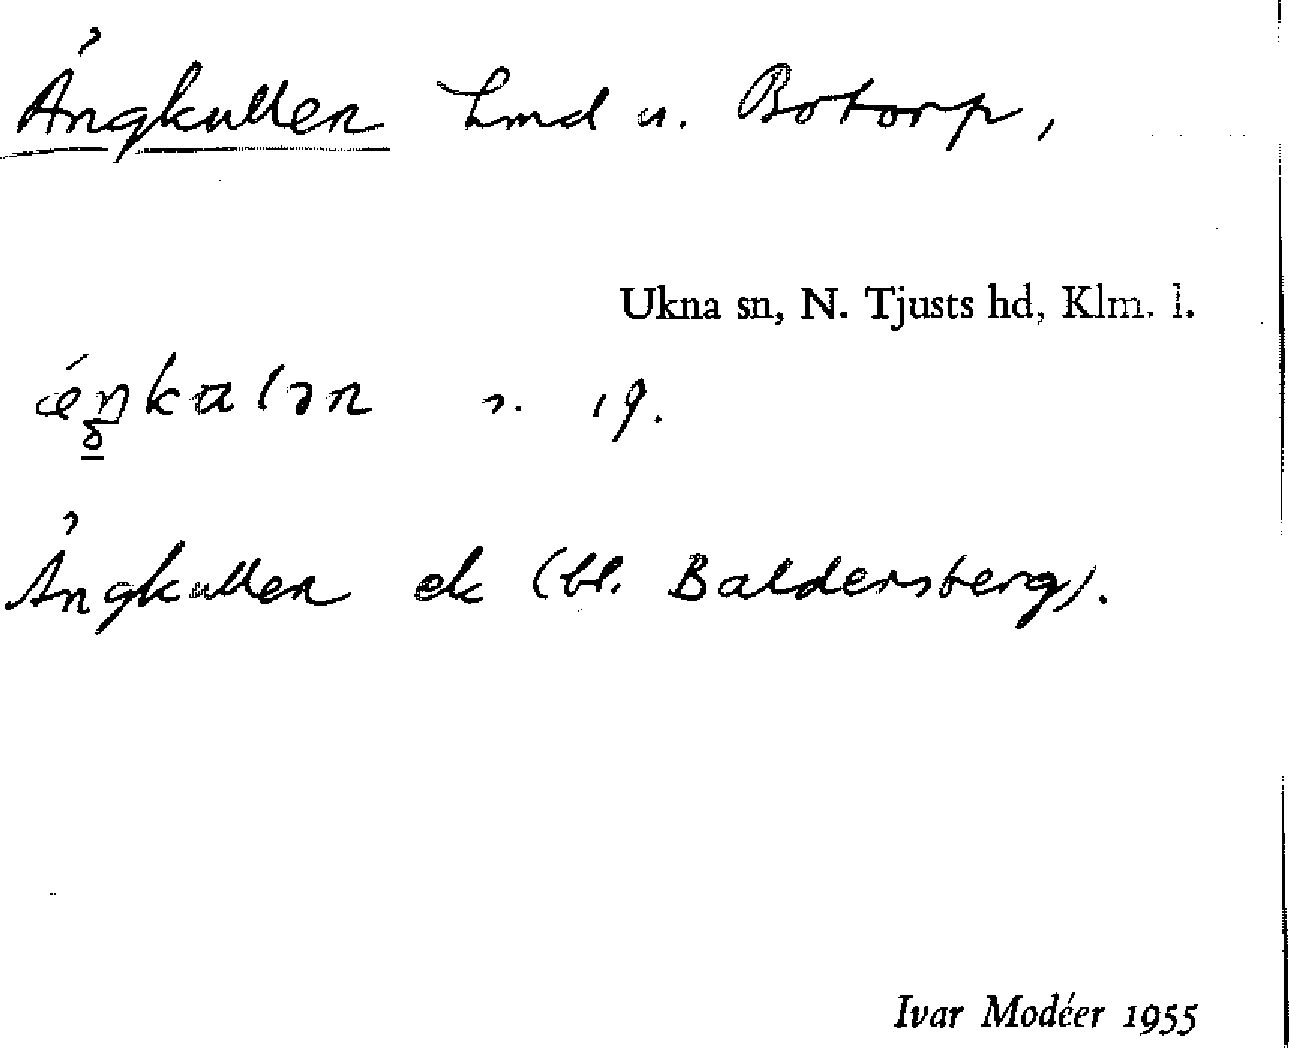 Ängkullen lmd u. Botorp,
Ukna sn, N. Tjusts hd, Klm. l.
Ängkullen ek (bl. Baldersberg).
Ivar Modéer 1955